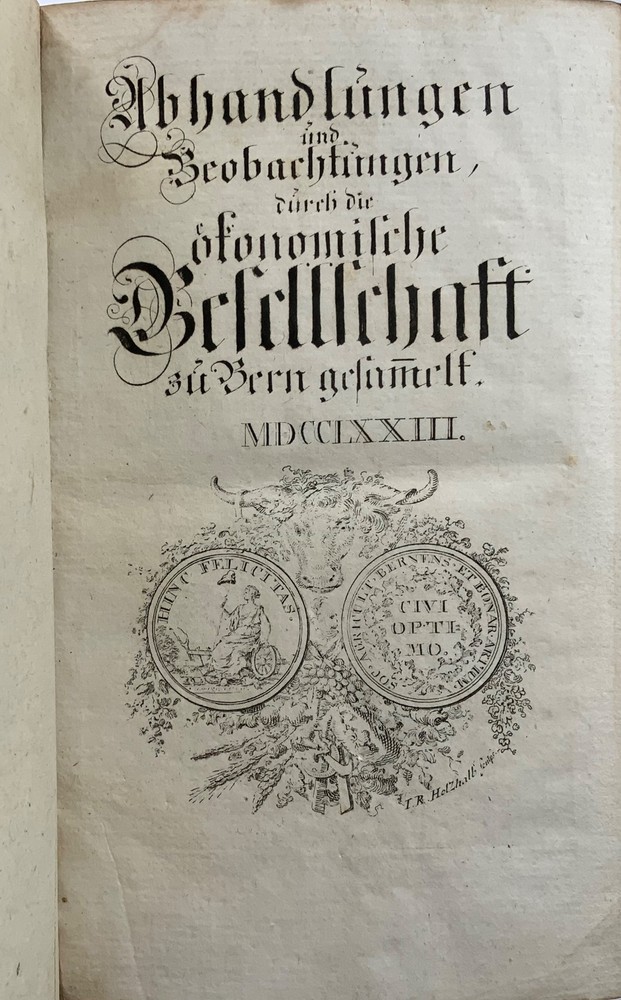 Abhandlŭngen
ŭnd
Beobachtŭngen,
dŭrch die
ökonomische
Gesellschaft
zŭ Bern gesam̅elt.
MDCCLXXIII.
HINC FELICITAS.
SOC. AGRICULT. BERNENS. ET BONAR. ARTIUM.
CIVI
OPTI-
MO.
I. R. Holzhalb sculps.